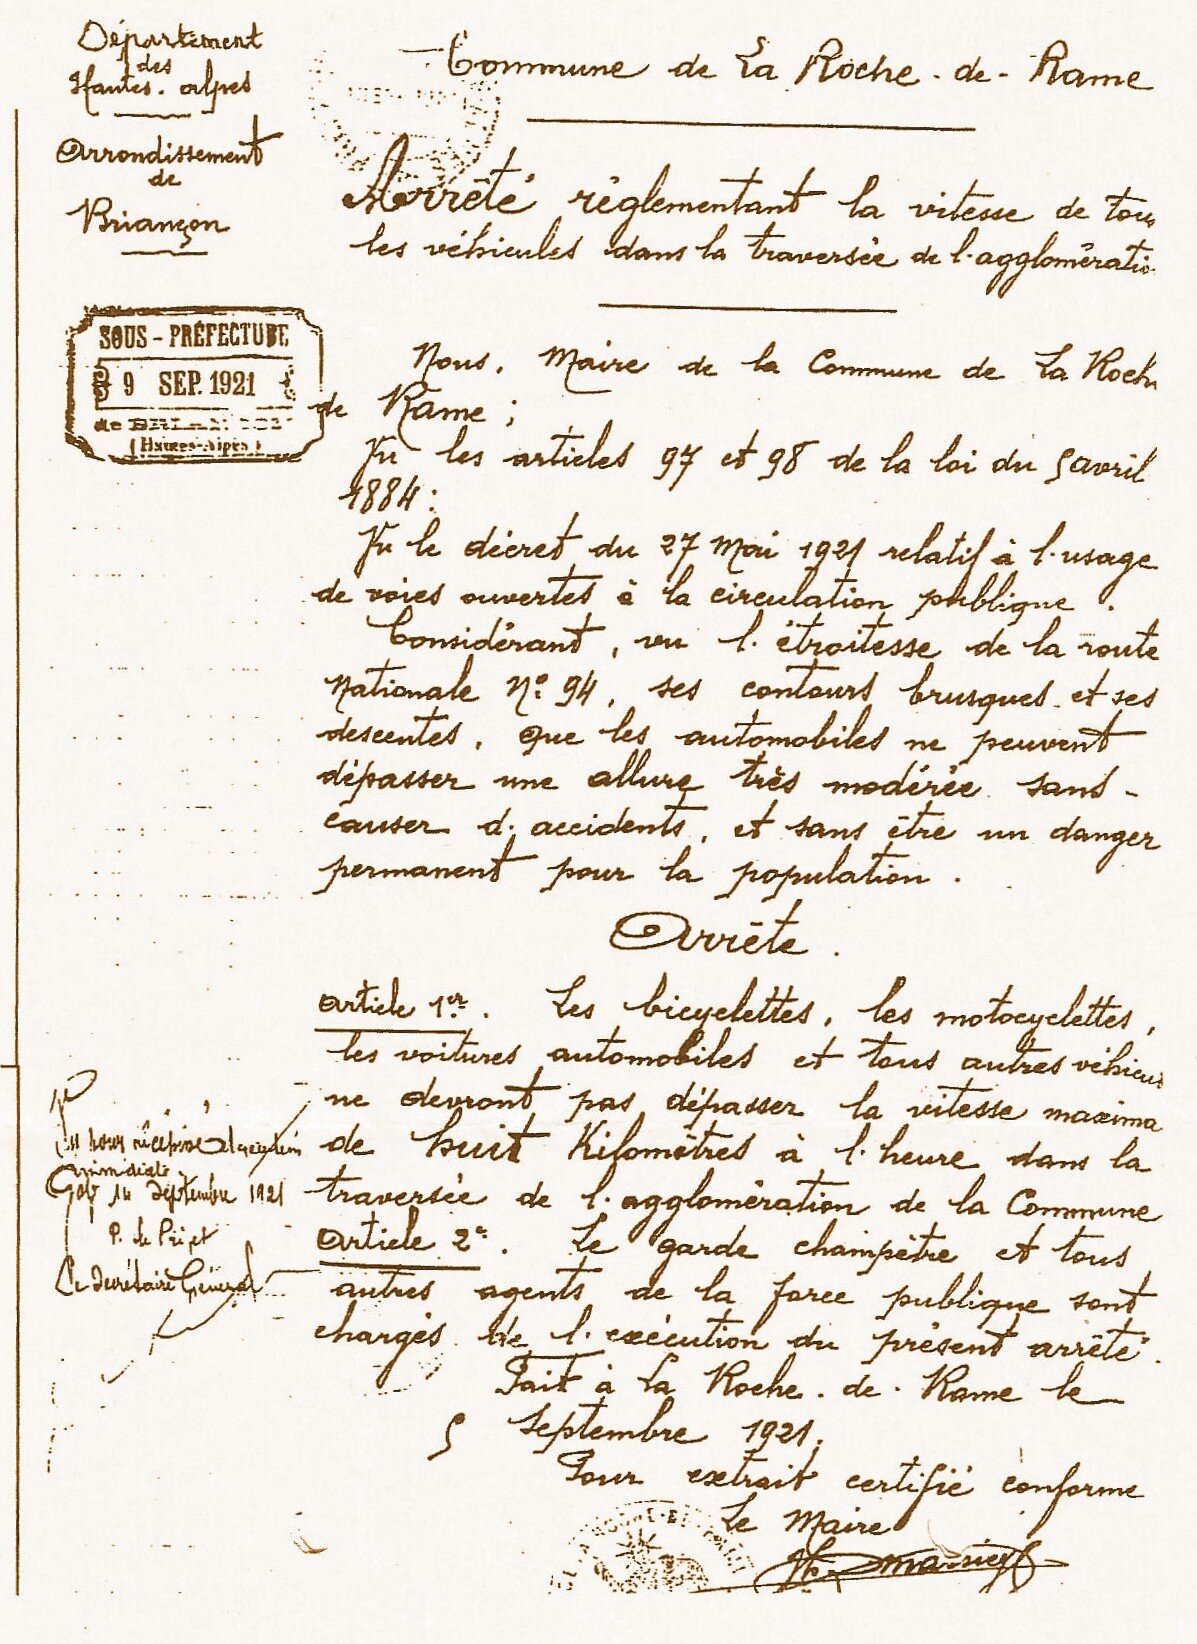 Département
des
Hautes-alpes
Arrondissement
de
Briançon
Commune de La Roche-de-Rame
Arrêté règlementant la vitesse de tous
les véhicules dans la traversée de l'agglomératio
SOUS-PRÉFECTURE
9 SEP. 1921
de BRIANÇON
(Hautes-Alpes)
Nous, Maire de la Commune de La Roche
de Rame ;
Vu les articles 97 et 98 de la loi du 5 avril
1884 :
Vu le décret du 27 Mai 1921 relatif à l'usage
de voies ouvertes à la circulation publique .
Considérant, vu l'étroitesse de la route
Nationale N° 94, ses contours brusques et ses
descentes, que les automobiles ne peuvent
dépasser une allure très modérée sans -
causer d'accidents, et sans être un danger
permanent pour la population .
Arrête .
Article 1er. Les bicyclettes, les motocyclettes,
les voitures automobiles et tous autres véhicu
ne devront pas dépasser la vitesse maxima
de huit Kilomètres à l'heure dans la
traversée de l'agglomération de la Commune
Article 2e. Le garde champêtre et tous
autres agents de la force publique sont
chargés de l'exécution du présent arrêté.
Fait à La Roche-de-Rame le
5 Septembre 1921.
Pour extrait certifié conforme
Le Maire
Vu pour récépissé et exécution
immédiate
Gap 14 Septembre 1921
P. le Préfet
Le Secrétaire Général